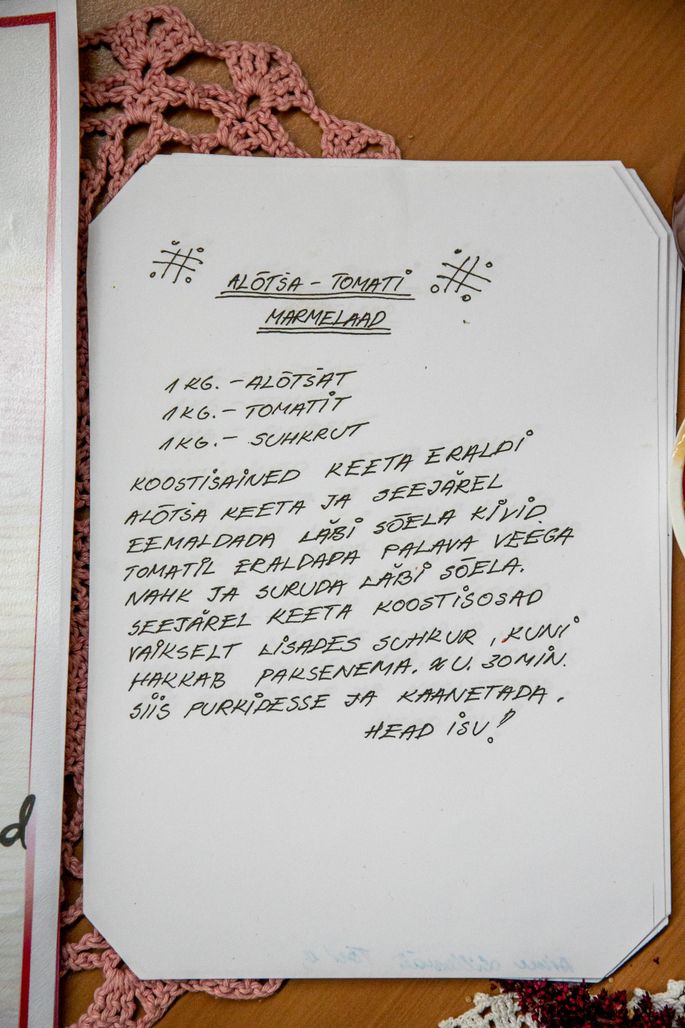 ALÕTŠA - TOMATI
MARMELAAD
1 KG. - ALÕTŠAT
1 KG. - TOMATIT
1 KG. - SUHKRUT
KOOSTISAINED KEETA ERALDI
ALÕTŠA KEETA JA SEEJÄREL
EEMALDADA LÄBI SÕELA KIVID
TOMATIL ERALDADA PALAVA VEEGA
NAHK JA SURUDA LÄBI SÕELA.
SEEJÄREL KEETA KOOSTISOSAD
VAIKSELT LISADES SUHKUR, KUNI
HAKKAB PAKSENEMA. U. 30 MIN.
SIIS PURKIDESSE JA KAANETADA.
HEAD ISU!
d